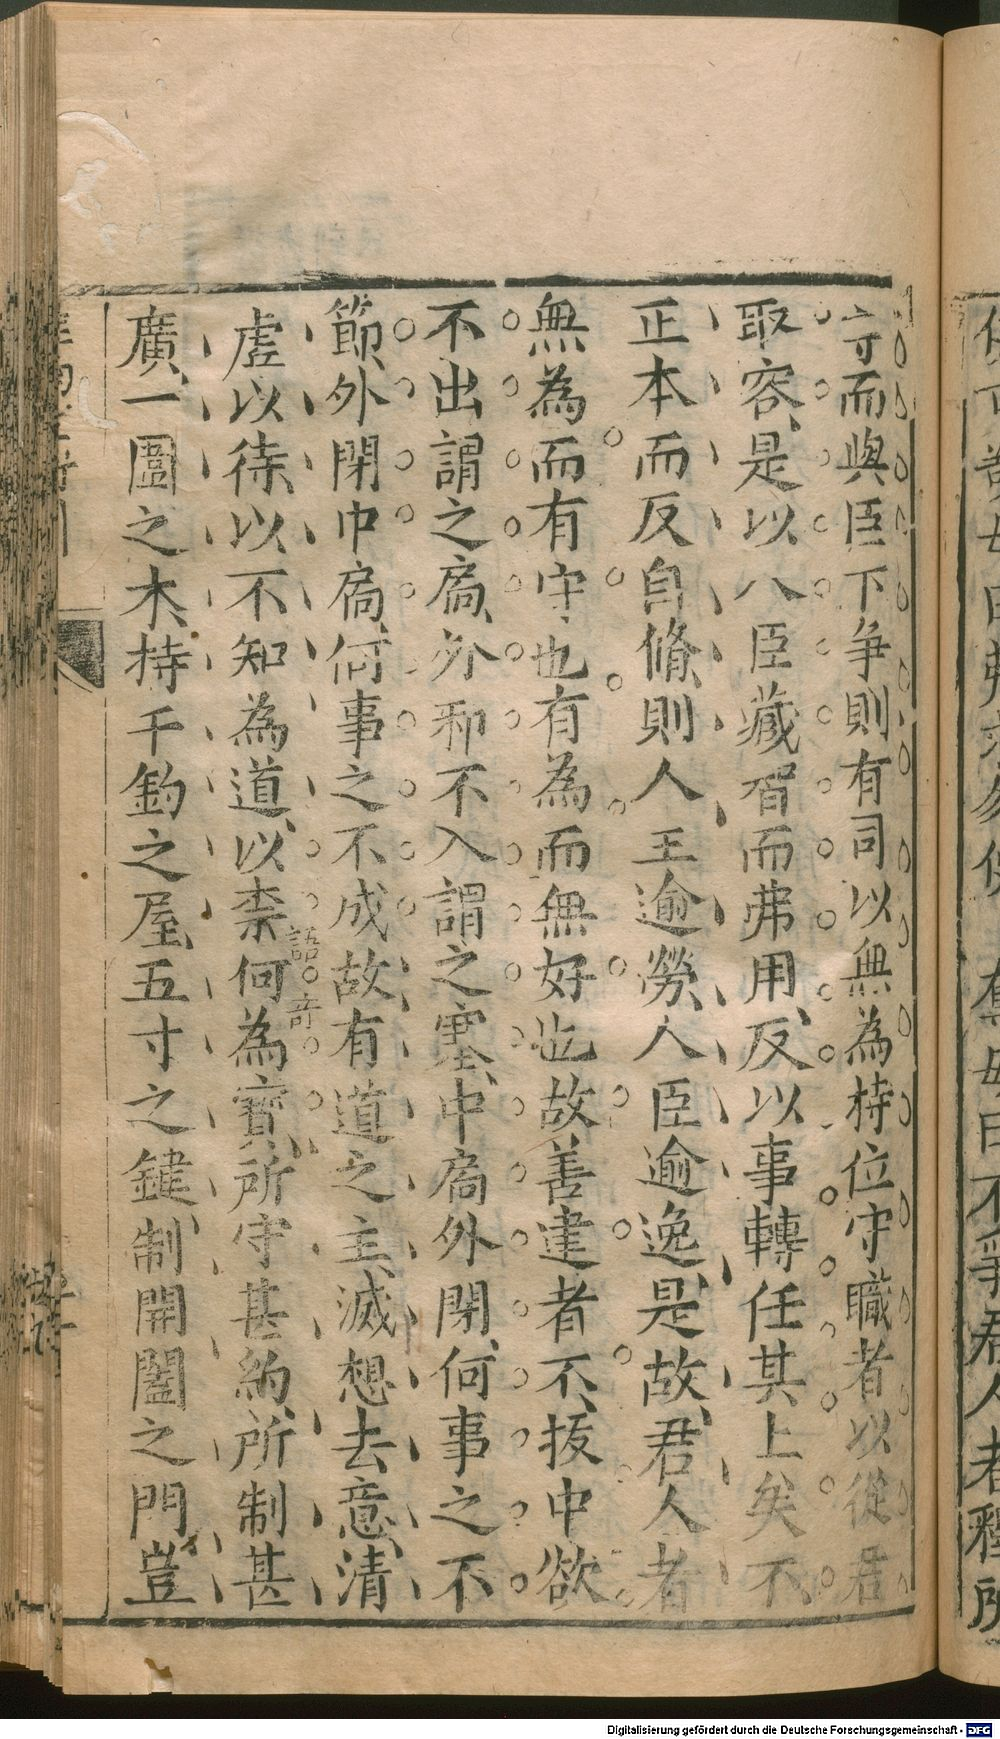 守而與臣下爭則有司以無為持位守職者以從君
取容是以人臣藏智而弗用反以事轉任其上矣不
正本而反自脩則人主逾勞人臣逾逸是故君人者
無為而有守也有為而無好也故善建者不拔中欲
不出謂之扃外邪不入謂之塞中扃外閉何事之不
節外閉中扃何事之不成故有道之主滅想去意清
虛以待以不知為道以柰何為寶所守甚約所制甚
語奇
廣一圍之木持千鈞之屋五寸之鍵制開闔之門豈
Digitalisierung gefördert durch die Deutsche Forschungsgemeinschaft - DFG